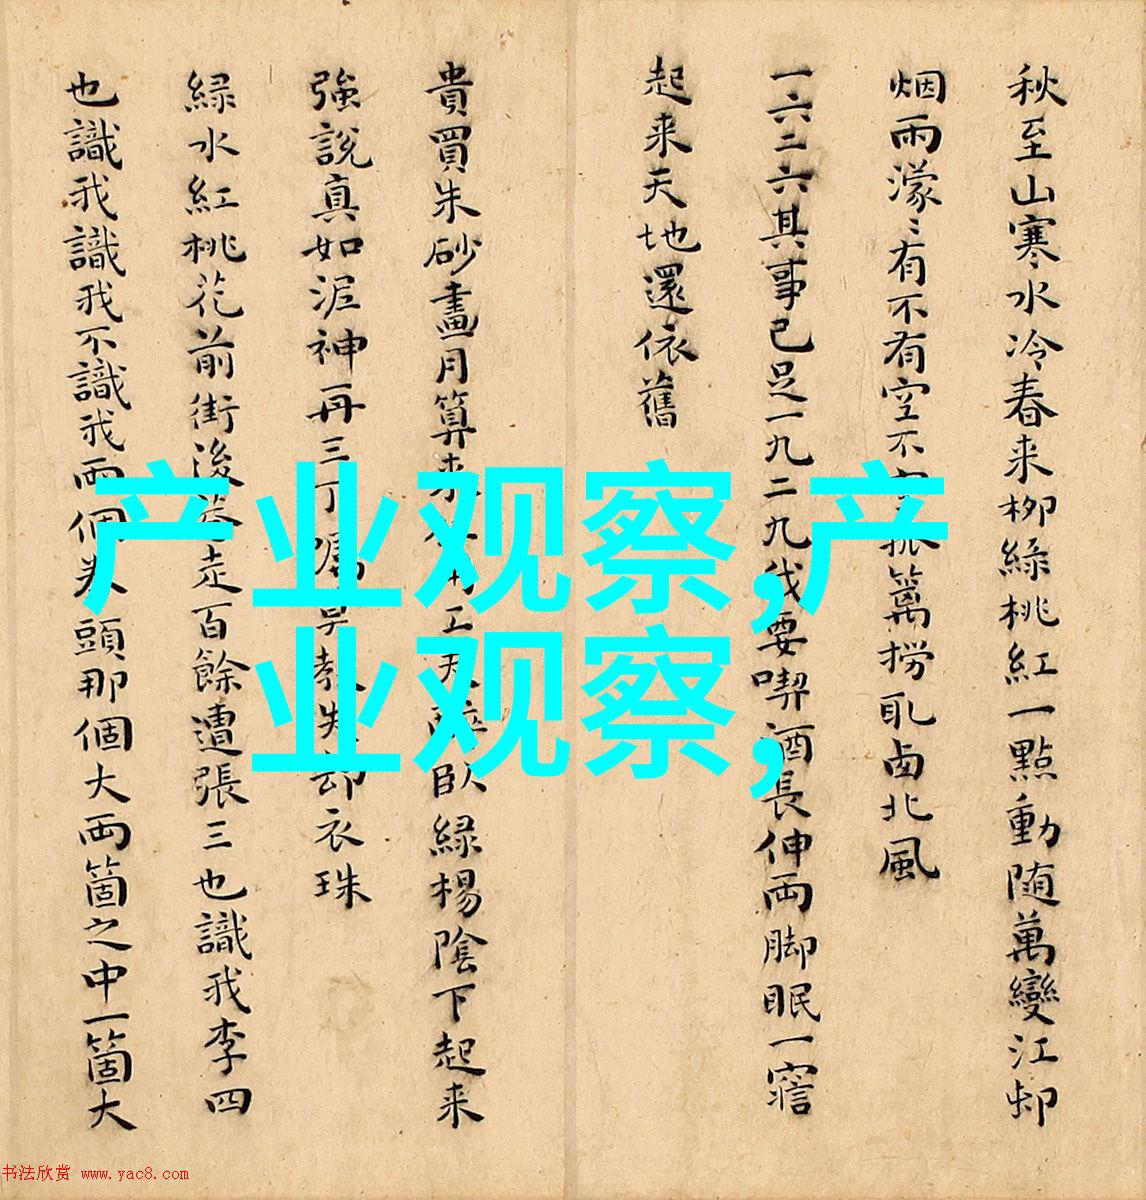 秋至山寒水冷春来柳綠桃紅一點動随萬變江邨
烟雨濛〻有不有空不 篱撈取西北風
一六二六其事已足一九二九我要喫酒長伸両脚眠一寤
起来天地還依舊
貴買朱砂畫月算来 工 臥綠楊陰下起来
強説真如泥神再三丁囑 教失却衣珠
綠水紅桃花前街後巷走百餘遭張三也識我李四
也識我識我不識我両個拳頭那個大両箇之中一箇大
产业观察,产
业观察,
书法欣赏 www.yac8.com